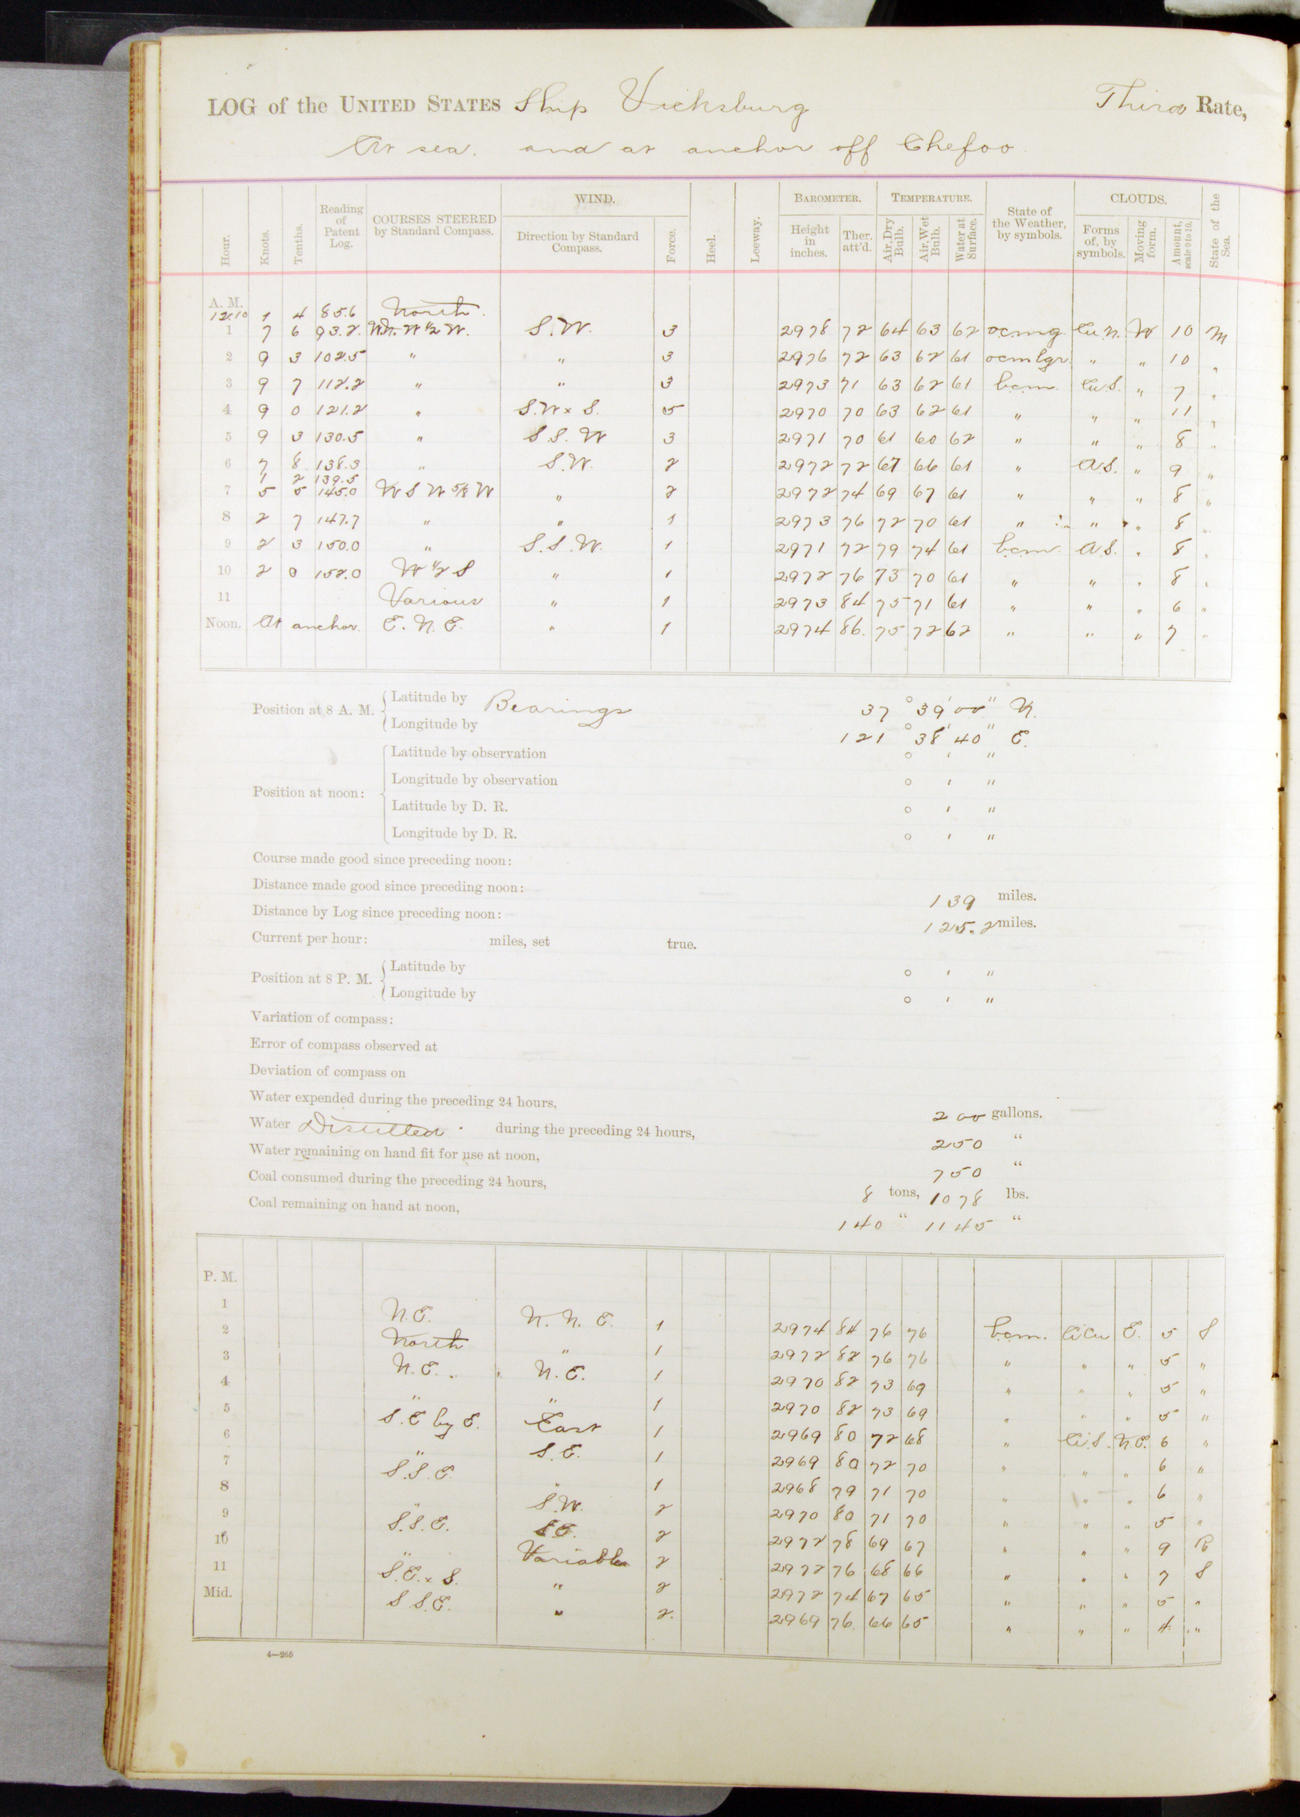 LOG of the UNITED STATES Ship Vicksburg Third Rate,
At sea. and at anchor off Chefoo.
Hour. Knots. Tenths. Reading of Patent Log. COURSES STEERED by Standard Compass. WIND. Direction by Standard Compass. Force. Heel. Leeway. BAROMETER. Height in inches. Ther. att'd. TEMPERATURE. Air, Dry Bulb. Air, Wet Bulb. Water at Surface. State of the Weather, by symbols. CLOUDS. Forms of, by symbols. Moving form. Amount, scale 0 to 10. State of the Sea.
A. M.
12 10 1 4 85.6 North.
1 7 6 93.2 W. S.W. 3 2978 72 64 63 62 ocmg Cu.N. W 10 M
2 9 3 102.5 " " 3 2976 72 63 62 61 ocmlgr " " 10 "
3 9 7 112.2 " " 3 2973 71 63 62 61 bcm. Cu.S. " 7 "
4 9 0 121.2 " S.W x S. 5 2970 70 63 62 61 " " " 11 "
5 9 3 130.5 " S.S.W 3 2971 70 61 60 62 " " " 8 "
6 7 8 138.3 " S.W. 2 2972 72 67 66 61 " A.S. " 9 "
1 2 139.5
7 5 5 145.0 W S W 5/8 W " 2 2972 74 69 67 61 " " " 8 "
8 2 7 147.7 " " 1 2973 76 72 70 61 " " " 8 "
9 2 3 150.0 " S.S.W. 1 2971 72 79 74 61 bcm A.S. " 8 "
10 2 0 152.0 W 1/2 S " 1 2972 76 73 70 61 " " " 8 "
11 Various " 1 2973 84 75 71 61 " " " 6 "
Noon. At anchor. E.N.E. " 1 2974 86. 75 72 62 " " " 7 "
Position at 8 A. M. Latitude by Bearings 37 ° 39 ' 00 " N.
Longitude by 121 ° 38 ' 40 " E.
Position at noon: Latitude by observation ° ' "
Longitude by observation ° ' "
Latitude by D. R. ° ' "
Longitude by D. R. ° ' "
Course made good since preceding noon:
Distance made good since preceding noon: 139 miles.
Distance by Log since preceding noon: 125.2 miles.
Current per hour: miles, set true.
Position at 8 P. M. Latitude by ° ' "
Longitude by ° ' "
Variation of compass:
Error of compass observed at
Deviation of compass on
Water expended during the preceding 24 hours, 200 gallons.
Water Distilled during the preceding 24 hours, 250 "
Water remaining on hand fit for use at noon, 750 "
Coal consumed during the preceding 24 hours, 8 tons, 1078 lbs.
Coal remaining on hand at noon, 140 " 1145 "
P. M.
1 N.E. N.N.E. 1 2974 84 76 76 bcm. CiCu E. 5 S
2 North " 1 2972 82 76 76 " " " 5 "
3 N.E. N.E. 1 2970 82 73 69 " " " 5 "
4 " " 1 2970 82 73 69 " " " 5 "
5 S.E by E. East 1 2969 80 72 68 " Ci.S. N.E. 6 "
6 " S.E. 1 2969 80 72 70 " " " 6 "
7 S.S.E. " 1 2968 79 71 70 " " " 6 "
8 " S.W. 2 2970 80 71 70 " " " 5 "
9 S.S.E. S.E. 2 2972 78 69 67 " " " 9 R
10 " Variable 2 2972 76 68 66 " " " 7 S
11 S.E. x S. " 2 2972 74 67 65 " " " 5 "
Mid. S.S.E. " 2. 2969 76. 66 65 " " " 4 "
4—266